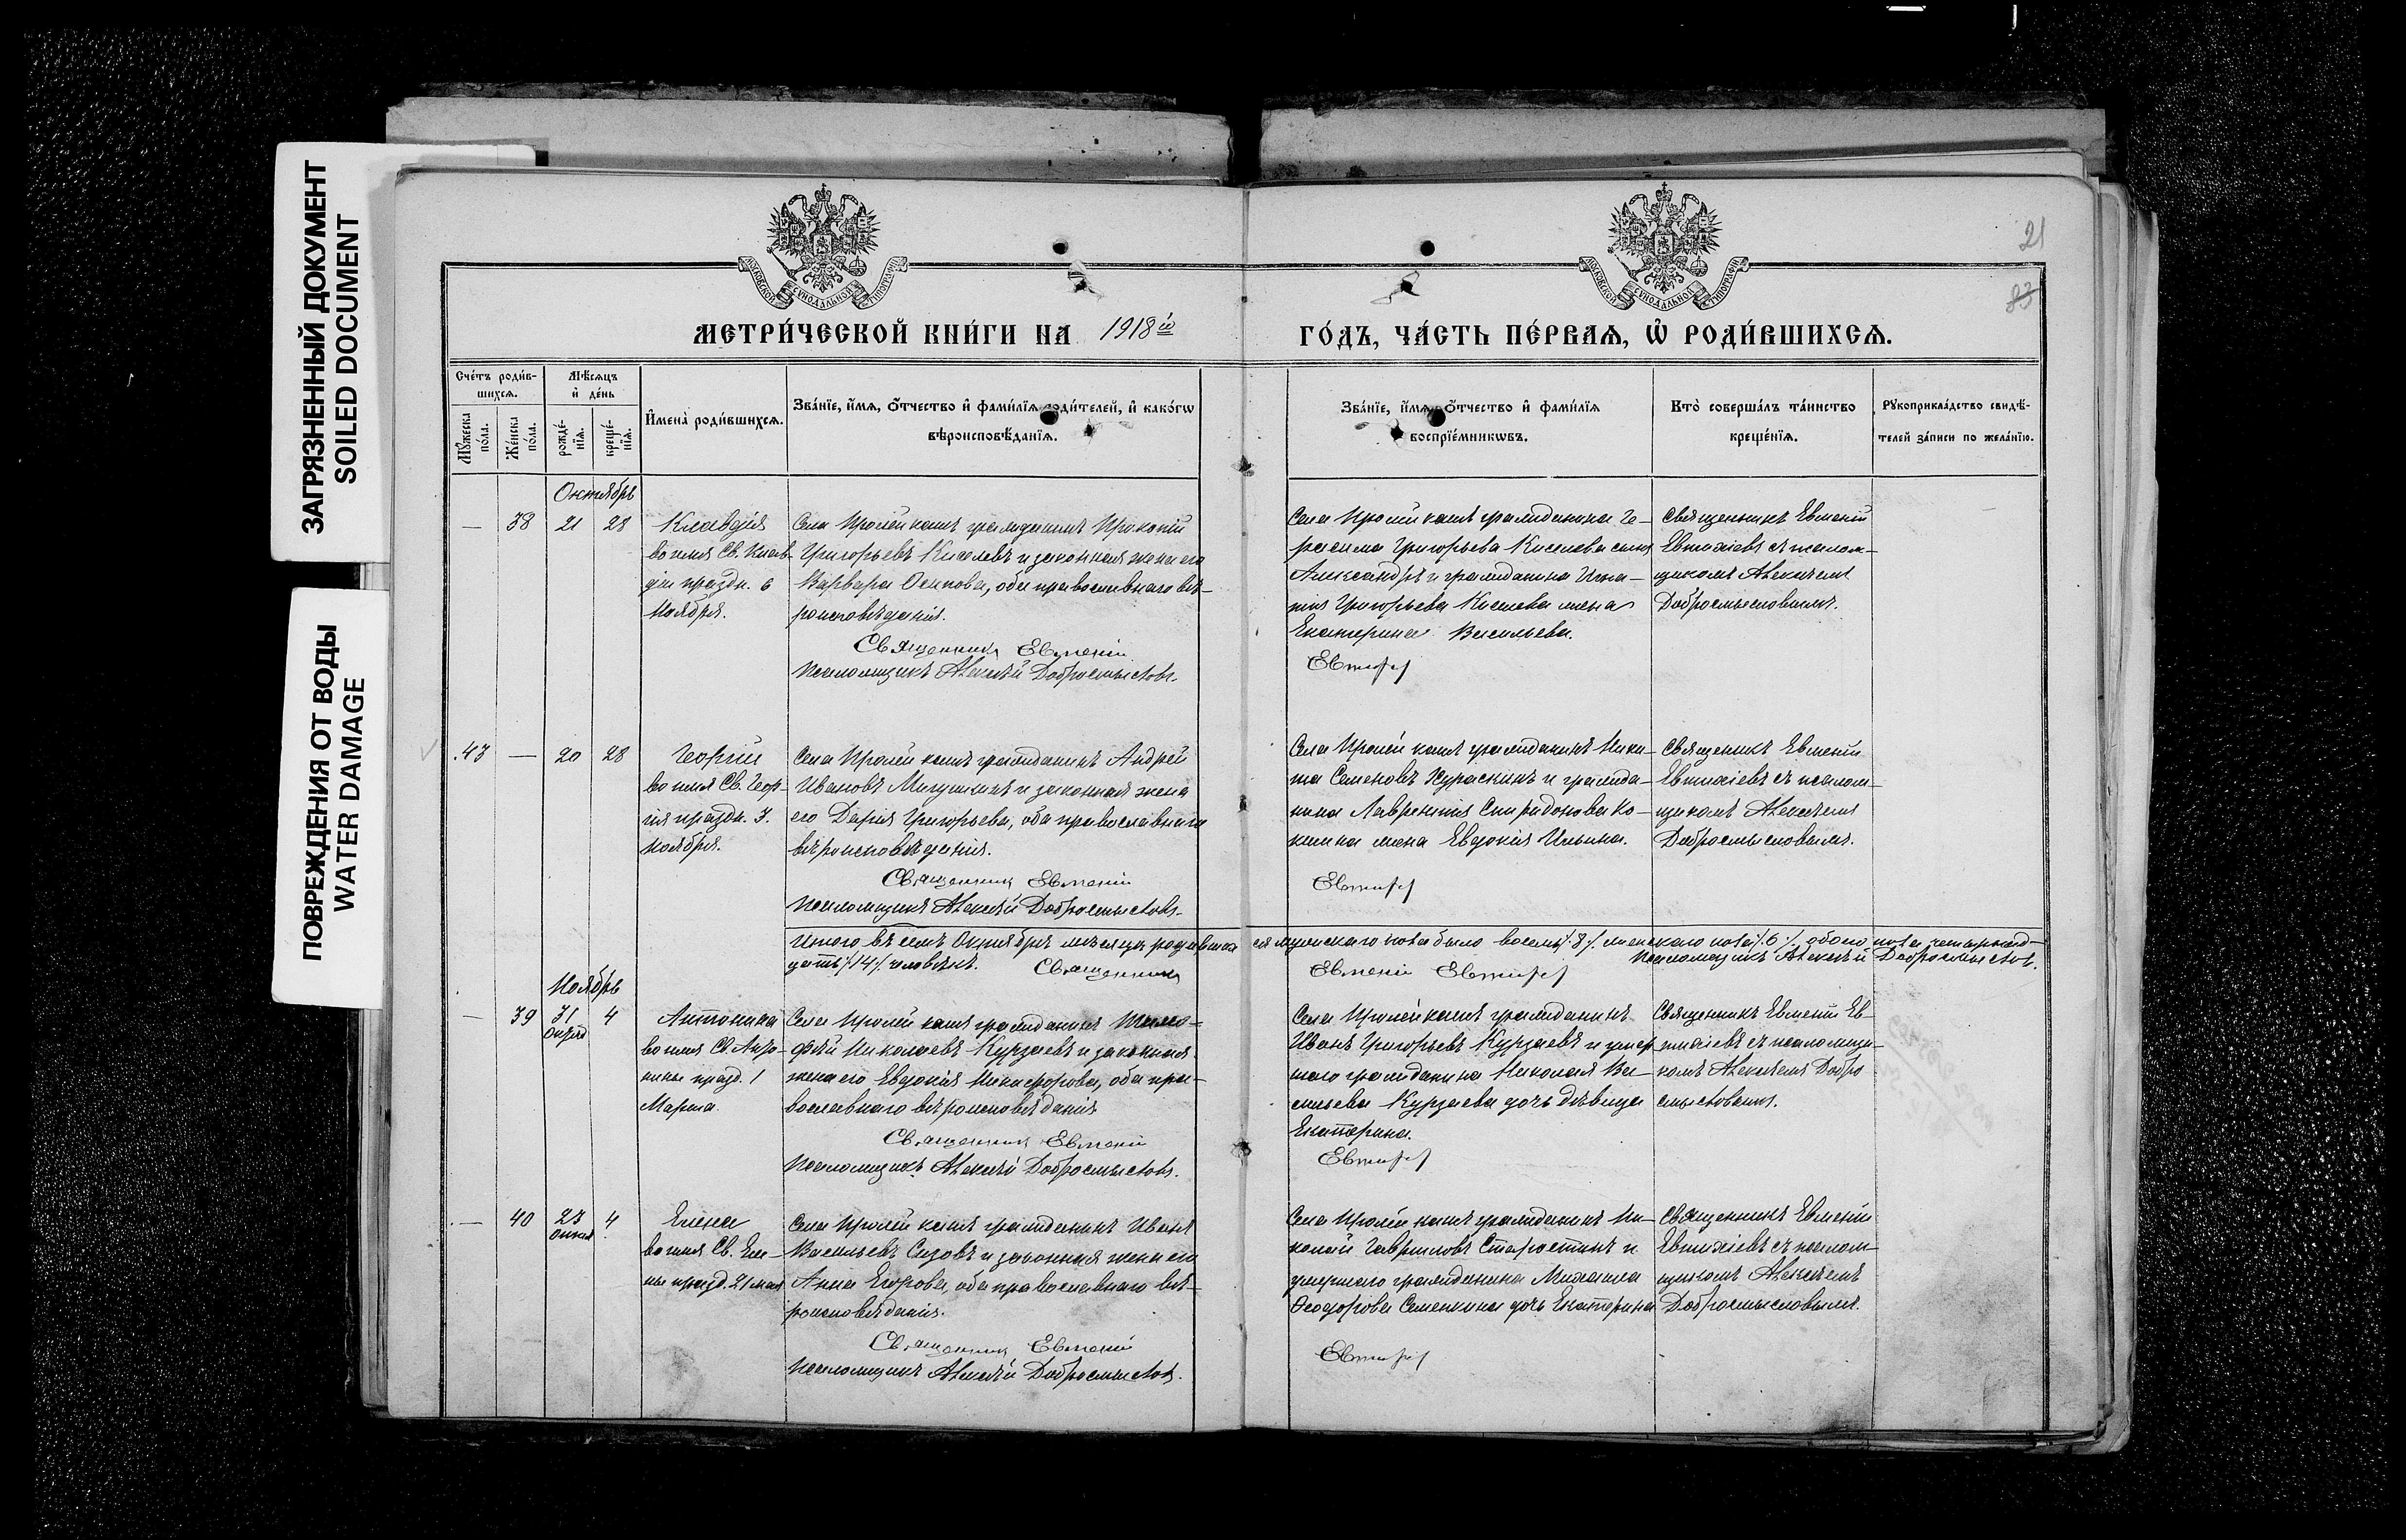 ЗАГРЯЗНЕННЫЙ ДОКУМЕНТ
SOILED DOCUMENT
ПОВРЕЖДЕНИЯ ОТ ВОДЫ
WATER DAMAGE
21
83
МОСКОВСКОЙ СУНОДАЛЬНОЙ ТИПОГРАФІИ
МОСКОВСКОЙ СУНОДАЛЬНОЙ ТИПОГРАФІИ
МЕТРИ́ЧЕСКОЙ КНИ́ГИ НА 1918й ГО́ДЪ, ЧА́СТЬ ПЕ́РВАѦ, Ѡ҆ РОДИ́ВШИХСѦ.
Сче́тъ роди́в-
шихсѧ.
Мꙋ́жеска по́ла.
Же́нска по́ла.
Мѣ́сѧцъ
и҆ де́нь
рожде́-
нїѧ.
креще́-
нїѧ.
И҆мена̀ роди́вшихсѧ.
Зва́нїе, и҆́мѧ, ѻ҆́тчество и҆ фами́лїѧ роди́телей, и҆ како́гѡ
вѣроисповѣ́данїѧ.
Зва́нїе, и҆́мѧ, ѻ҆́тчество и҆ фами́лїѧ
воспрїе́мникѡвъ.
Кто̀ соверша́лъ та́инство
креще́нїѧ.
Рꙋкоприкла́дство свидѣ́-
телей за́писи по жела́нїю.
Октябрь
— 38 21 28
Клавдія
во имя Св. Клав-
діи праздн. 6
Ноября.
Села Пролей кашъ гражданинъ Прокопій
Григорьевъ Киселевъ и законная жена его
Варвара Осипова, оба православнаго вѣ-
роисповѣданія.
Священникъ Евменій
Псаломщикъ Алексѣй Добросмысловъ.
Села Пролей кашъ гражданина Ге-
расима Григорьева Киселева сынъ
Александръ и гражданина Игна-
тія Григорьева Киселева жена
Екатерина Васильева.
Священникъ Евменій
Евтихіевъ съ псалом-
щикомъ Алексѣемъ
Добросмысловымъ.
43 — 20 28
Георгій
во имя Св. Геор-
гія праздн. 3.
ноября.
Села Пролей кашъ гражданинъ Андрей
Ивановъ и законная жена
его Дарія Григорьева, оба православнаго
вѣроисповѣданія.
Священникъ Евменій
Псаломщикъ Алексѣй Добросмысловъ.
Села Пролей кашъ гражданинъ Ники-
та Семеновъ Кураскинъ и гражда-
нина Лаврентія Спиридонова Ко-
кина жена Евдокія Ильина.
Священникъ Евменій
Евтихіевъ съ псалом-
щикомъ Алексѣемъ
Добросмысловымъ.
Итого въ семъ Октябрѣ мѣсяцѣ родившихся мужскаго пола было восемь /8/ женскаго пола /6/ обоего пола четырнад-
цать /14/ человѣкъ. Священникъ Евменій
Псаломщикъ Алексѣй Добросмысловъ.
Ноябрь
— 39 31 4
Антонина
во имя Св. Анто-
нины празд. 1
Марта.
Села Пролей кашъ гражданинъ Тимо-
фей Николаевъ Курзаевъ и законная
жена его Евдокія Никифорова, оба пра-
вославнаго вѣроисповѣданія
Священникъ Евменій
Псаломщикъ Алексѣй Добросмысловъ.
Села Пролей кашъ гражданинъ
Иванъ Григорьевъ Курзаевъ и умер-
шаго гражданина Николая Ва-
сильева Курзаева дочь дѣвица
Екатерина.
Священникъ Евменій Ев-
тихіевъ съ псаломщи-
комъ Алексѣемъ Добро
смысловымъ.
— 40 23 4
Елена
во имя Св. Еле-
ны празд. 21 мая
Села Пролей кашъ гражданинъ Иванъ
Васильевъ Сизовъ и законная жена его
Анна Егорова, оба православнаго вѣ-
роисповѣданія.
Священникъ Евменій
Псаломщикъ Алексѣй Добросмысловъ.
Села Пролей кашъ гражданинъ Ни-
колай Гавриловъ Старостинъ и
умершаго гражданина Михаила
Ѳеодорова Семенкина дочь Екатерина
Священникъ Евменій
Евтихіевъ съ псалом-
щикомъ Алексѣемъ
Добросмысловымъ.